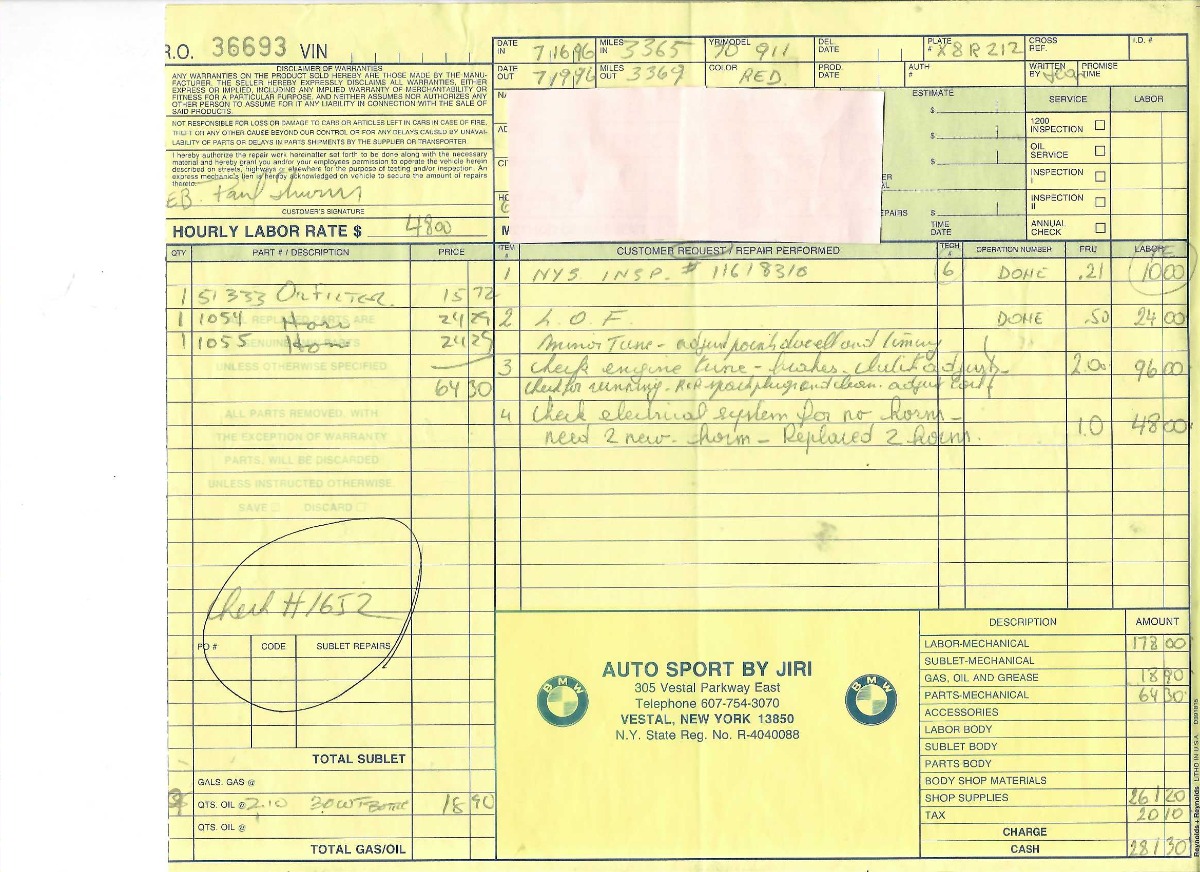 R.O. 36693 VIN
DISCLAIMER OF WARRANTIES
ANY WARRANTIES ON THE PRODUCT SOLD HEREBY ARE THOSE MADE BY THE MANU-
FACTURER. THE SELLER HEREBY EXPRESSLY DISCLAIMS ALL WARRANTIES, EITHER
EXPRESS OR IMPLIED, INCLUDING ANY IMPLIED WARRANTY OF MERCHANTABILITY OR
FITNESS FOR A PARTICULAR PURPOSE, AND NEITHER ASSUMES NOR AUTHORIZES ANY
OTHER PERSON TO ASSUME FOR IT ANY LIABILITY IN CONNECTION WITH THE SALE OF
SAID PRODUCTS.
NOT RESPONSIBLE FOR LOSS OR DAMAGE TO CARS OR ARTICLES LEFT IN CARS IN CASE OF FIRE,
THEFT OR ANY OTHER CAUSE BEYOND OUR CONTROL OR FOR ANY DELAYS CAUSED BY UNAVAI-
LABILITY OF PARTS OR DELAYS IN PARTS SHIPMENTS BY THE SUPPLIER OR TRANSPORTER.
I hereby authorize the repair work hereinafter set forth to be done along with the necessary
material and hereby grant you and/or your employees permission to operate the vehicle herein
described on streets, highways or elsewhere for the purpose of testing and/or inspection. An
express mechanic's lien is hereby acknowledged on vehicle to secure the amount of repairs
thereto.
CUSTOMER'S SIGNATURE
HOURLY LABOR RATE $ 48 00
DATE IN 7/16/96 MILES IN 3365 YR/MODEL 70 911 DEL. DATE PLATE # X8R212 CROSS REF. I.D. #
DATE OUT 7/19/96 MILES OUT 3369 COLOR RED PROD. DATE AUTH # WRITTEN BY PROMISE TIME
ESTIMATE
$
$
$
$
TIME
DATE
SERVICE LABOR
1200 INSPECTION
OIL SERVICE
INSPECTION I
INSPECTION II
ANNUAL CHECK
QTY PART # / DESCRIPTION PRICE
1 51333 Oil Filter 15 72
1 1054 Horn 24 29
1 1055 Horn 24 29
64 30
ALL REPLACED PARTS ARE
GENUINE PARTS
UNLESS OTHERWISE SPECIFIED
ALL PARTS REMOVED, WITH
THE EXCEPTION OF WARRANTY
PARTS, WILL BE DISCARDED
UNLESS INSTRUCTED OTHERWISE.
SAVE DISCARD
Check #1652
PO # CODE SUBLET REPAIRS
TOTAL SUBLET
GALS. GAS @
9 QTS. OIL @ 2.10 30WT Bottle 18 90
QTS. OIL @
TOTAL GAS/OIL
ITEM # CUSTOMER REQUEST / REPAIR PERFORMED TECH # OPERATION NUMBER FRU LABOR
1 NYS INSP. # 11618310 6 DONE .21 10 00
2 L.O.F. DONE .50 24 00
Minor Tune - adjust points dwell and timing
3 Check engine tune - brakes - clutch adjust - 2.0 96 00
Check for running. R+R spark plugs and clean. adjust
4 Check electrical system for no horns - 1.0 48 00
need 2 new - horn - Replaced 2 horns.
BMW
AUTO SPORT BY JIRI
305 Vestal Parkway East
Telephone 607-754-3070
VESTAL, NEW YORK 13850
N.Y. State Reg. No. R-4040088
BMW
DESCRIPTION AMOUNT
LABOR-MECHANICAL 178 00
SUBLET-MECHANICAL
GAS, OIL AND GREASE 18 90
PARTS-MECHANICAL 64 30
ACCESSORIES
LABOR BODY
SUBLET BODY
PARTS BODY
BODY SHOP MATERIALS
SHOP SUPPLIES 261 20
TAX 20 10
CHARGE
CASH 281 30
Reynolds + Reynolds LITHO IN U.S.A.